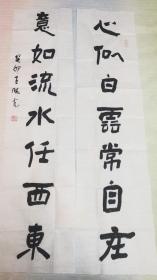 心似白雲常自在
意如流水任西東